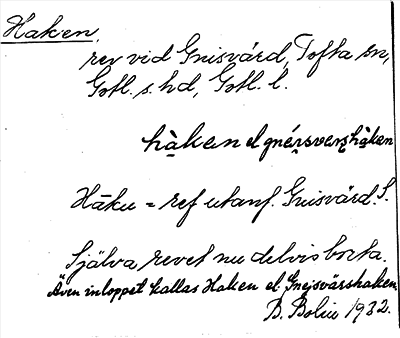 Haken.
rev vid Gnisvärd, Tofta sn,
Gotl. s. hd, Gotl. l.
hà̱ken el gnérsvers hà̱ken
Hāku = ref utanf. Gnisvärd. S.
Själva revet nu delvis borta.
Även inloppet kallas Haken el. Gnejsvärshaken.
B. Bolin 1932.